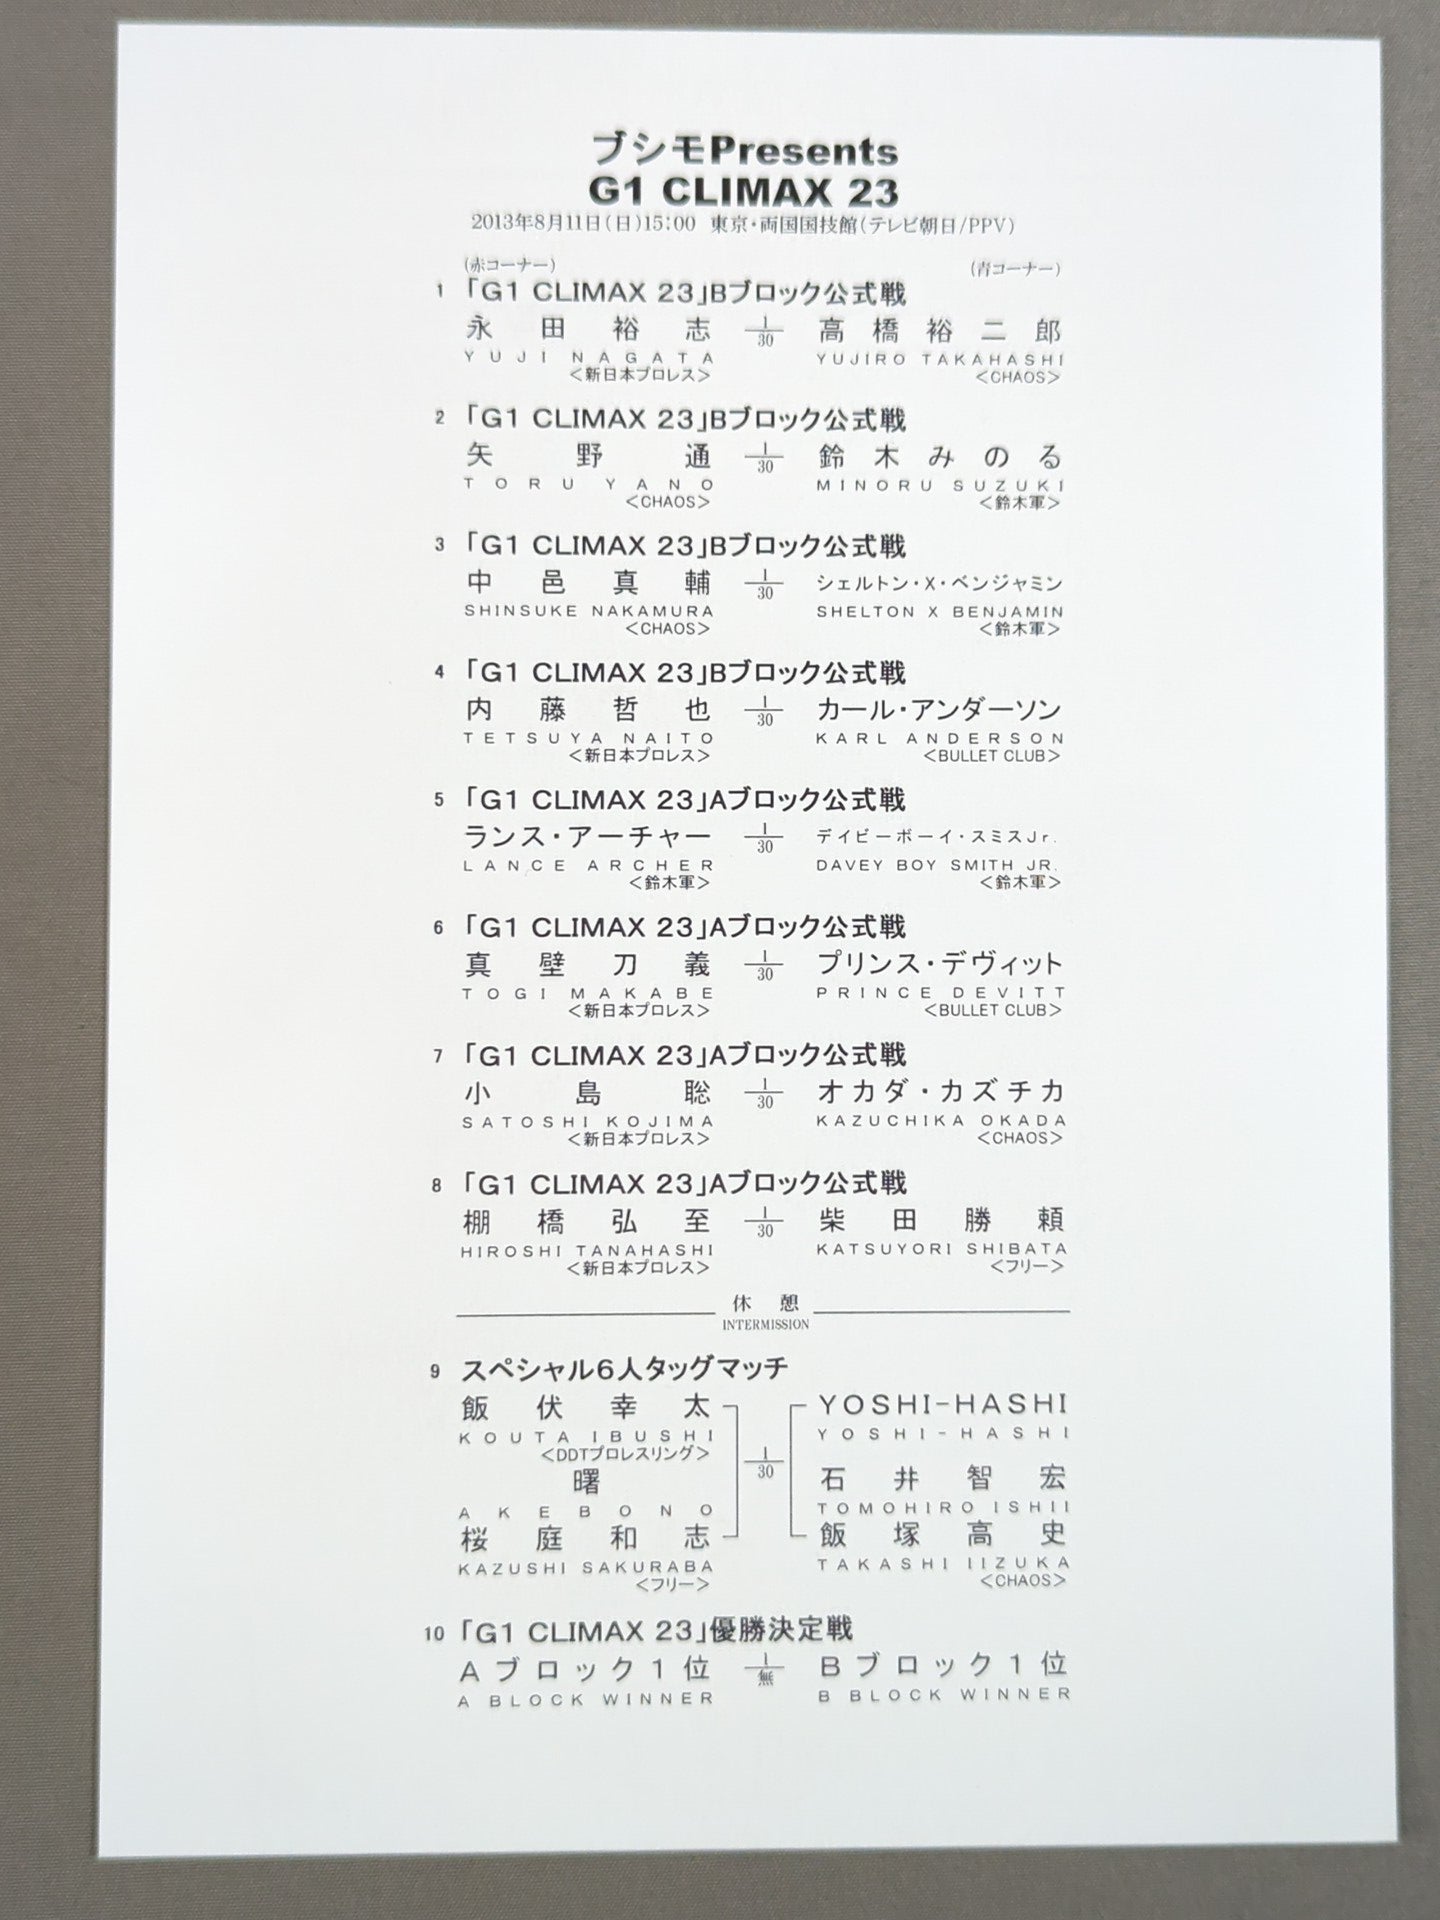 ブシモPresents
G1 CLIMAX 23
2013年8月11日(日)15:00 東京・両国国技館(テレビ朝日/PPV)
(赤コーナー) (青コーナー)
1 「G1 CLIMAX 23」Bブロック公式戦
永田裕志 1/30 高橋裕二郎
YUJI NAGATA YUJIRO TAKAHASHI
<新日本プロレス> <CHAOS>
2 「G1 CLIMAX 23」Bブロック公式戦
矢野通 1/30 鈴木みのる
TORU YANO MINORU SUZUKI
<CHAOS> <鈴木軍>
3 「G1 CLIMAX 23」Bブロック公式戦
中邑真輔 1/30 シェルトン・X・ベンジャミン
SHINSUKE NAKAMURA SHELTON X BENJAMIN
<CHAOS> <鈴木軍>
4 「G1 CLIMAX 23」Bブロック公式戦
内藤哲也 1/30 カール・アンダーソン
TETSUYA NAITO KARL ANDERSON
<新日本プロレス> <BULLET CLUB>
5 「G1 CLIMAX 23」Aブロック公式戦
ランス・アーチャー 1/30 デイビーボーイ・スミスJr.
LANCE ARCHER DAVEY BOY SMITH JR.
<鈴木軍> <鈴木軍>
6 「G1 CLIMAX 23」Aブロック公式戦
真壁刀義 1/30 プリンス・デヴィット
TOGI MAKABE PRINCE DEVITT
<新日本プロレス> <BULLET CLUB>
7 「G1 CLIMAX 23」Aブロック公式戦
小島聡 1/30 オカダ・カズチカ
SATOSHI KOJIMA KAZUCHIKA OKADA
<新日本プロレス> <CHAOS>
8 「G1 CLIMAX 23」Aブロック公式戦
棚橋弘至 1/30 柴田勝頼
HIROSHI TANAHASHI KATSUYORI SHIBATA
<新日本プロレス> <フリー>
休憩
INTERMISSION
9 スペシャル6人タッグマッチ
飯伏幸太 YOSHI-HASHI
KOUTA IBUSHI YOSHI-HASHI
<DDTプロレスリング>
曙 1/30 石井智宏
AKEBONO TOMOHIRO ISHII
桜庭和志 飯塚高史
KAZUSHI SAKURABA TAKASHI IIZUKA
<フリー> <CHAOS>
10 「G1 CLIMAX 23」優勝決定戦
Aブロック1位 1/無 Bブロック1位
A BLOCK WINNER B BLOCK WINNER